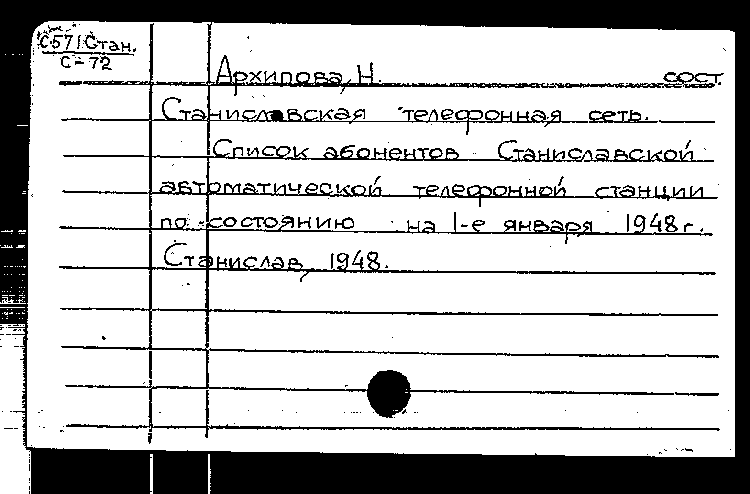 С571Стан.
С-72
Архипова, Н. сост.
Станиславская телефонная сеть.
Список абонентов Станиславской
автоматической телефонной станции
по состоянию на 1-е января 1948г.
Станислав, 1948.